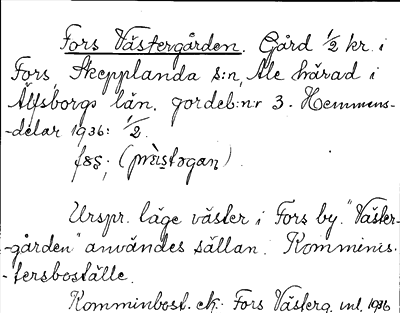 Fors Västergården. Gård 1/2 kr. i
Fors, Skepplanda s:n, Ale härad i
Älfsborgs län, jordeb:nr 3. Hemmans-
-delar 1936: 1/2.
Urspr. läge väster i Fors by. "Väster-
-gården" användes sällan. Komminis-
-tersboställe.
Komminbost. ek: Fors Västerg. inl. 1936